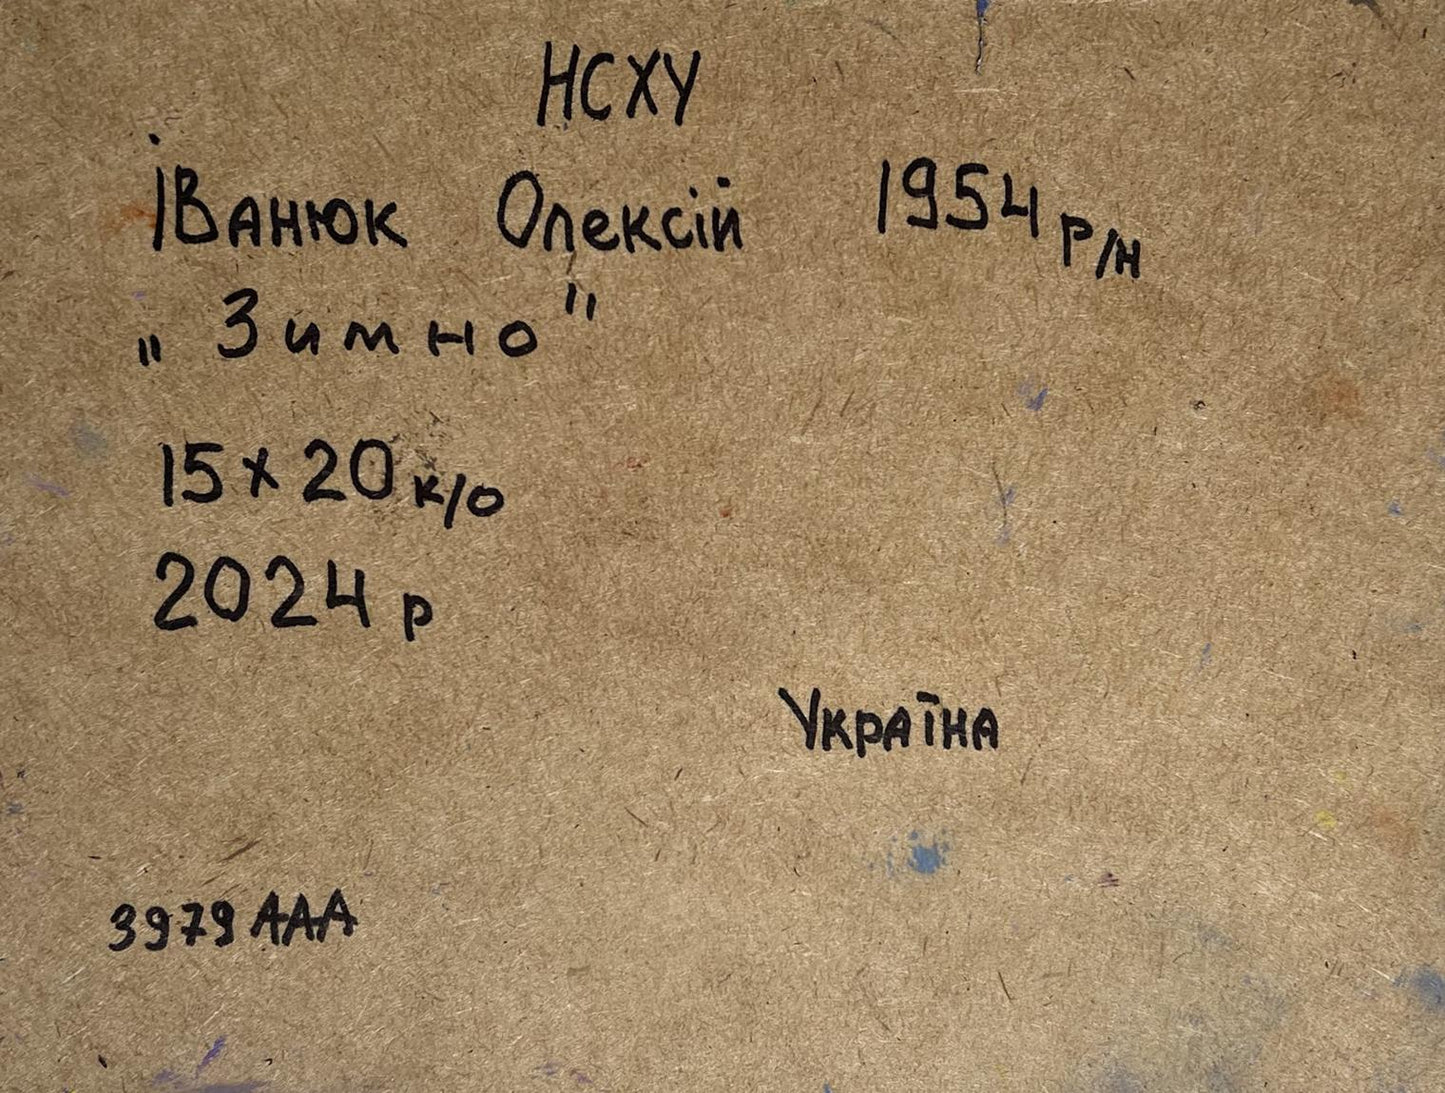 НСХУ
Іванюк Олексій 1954 р/н
„Зимно"
15×20 к/о
2024 р
Україна
3979 ААА